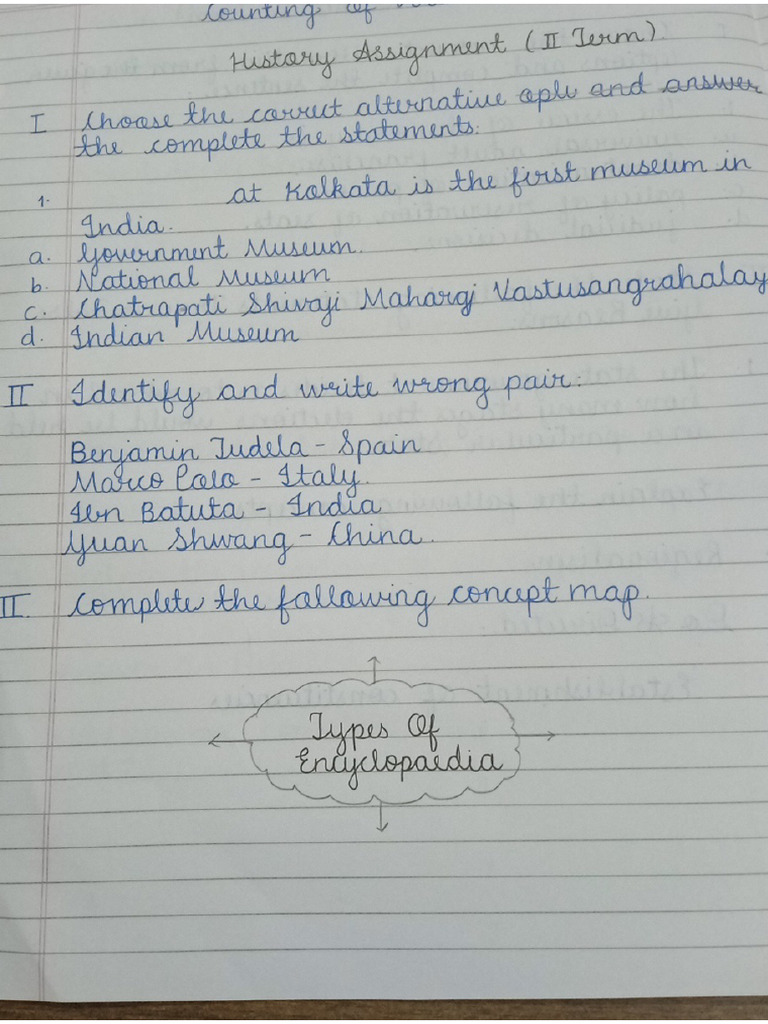 Counting of
History Assignment (II Term).
I Choose the correct alternative and answer
the complete the statements.
1. at Kolkata is the first museum in
India.
a. Government Museum.
b. National Museum
c. Chatrapati Shivaji Mahargj Vastusangrahalay
d. Indian Museum
II Identify and write wrong pair:
Benjamin Tudela - Spain
Marco Polo - Italy.
Ibn Batuta - India
Yuan Shwang - China.
II. Complete the following concept map.
Types Of
Encyclopaedia